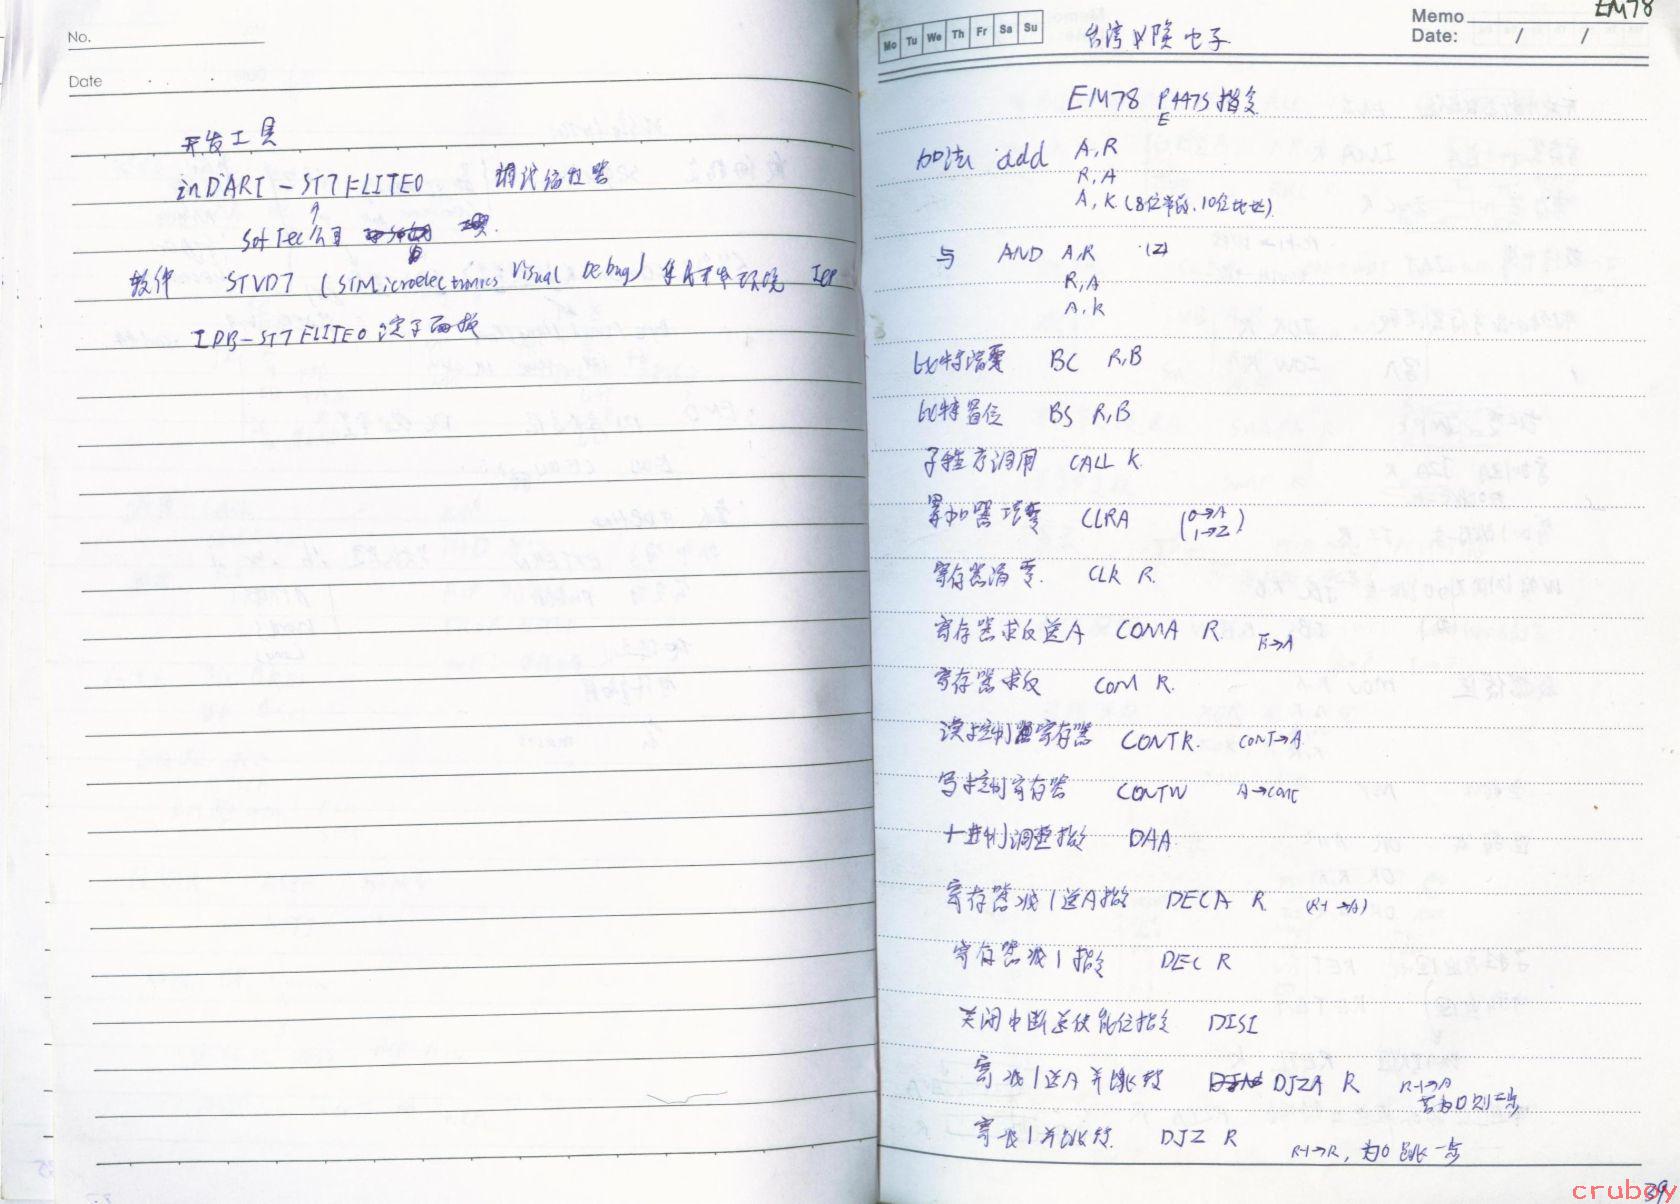 No.
Date
开发工具
inDART-ST7FLITE0 调试编程器
SofTec公司
软件 STVD7 (STMicroelectronics Visual Debug) 集成开发环境
IDB-ST7FLITE0 演示面板
Mo Tu We Th Fr Sa Su
台湾义隆电子
Memo EM78
Date: / /
EM78 P447S指令
E
加法 add A,R
R,A
A,K (8位常数,10位地址)
与 AND A,R (Z)
R,A
A,K
比特清零 BC R,B
比特置位 BS R,B
子程序调用 CALL K
累加器清零 CLRA (0→A
1→Z)
寄存器清零 CLR R
寄存器求反送A COMA R R→A
寄存器求反 COM R
读控制寄存器 CONTR CONT→A
写控制寄存器 CONTW A→CONT
十进制调整指令 DAA
寄存器减1送A指令 DECA R (R-1→A)
寄存器减1指令 DEC R
关闭中断总使能位指令 DISI
寄减1送A并跳转 DJZA R R-1→A
若为0则二步
寄减1并跳转 DJZ R R-1→R, 为0跳一步
39
cruboy